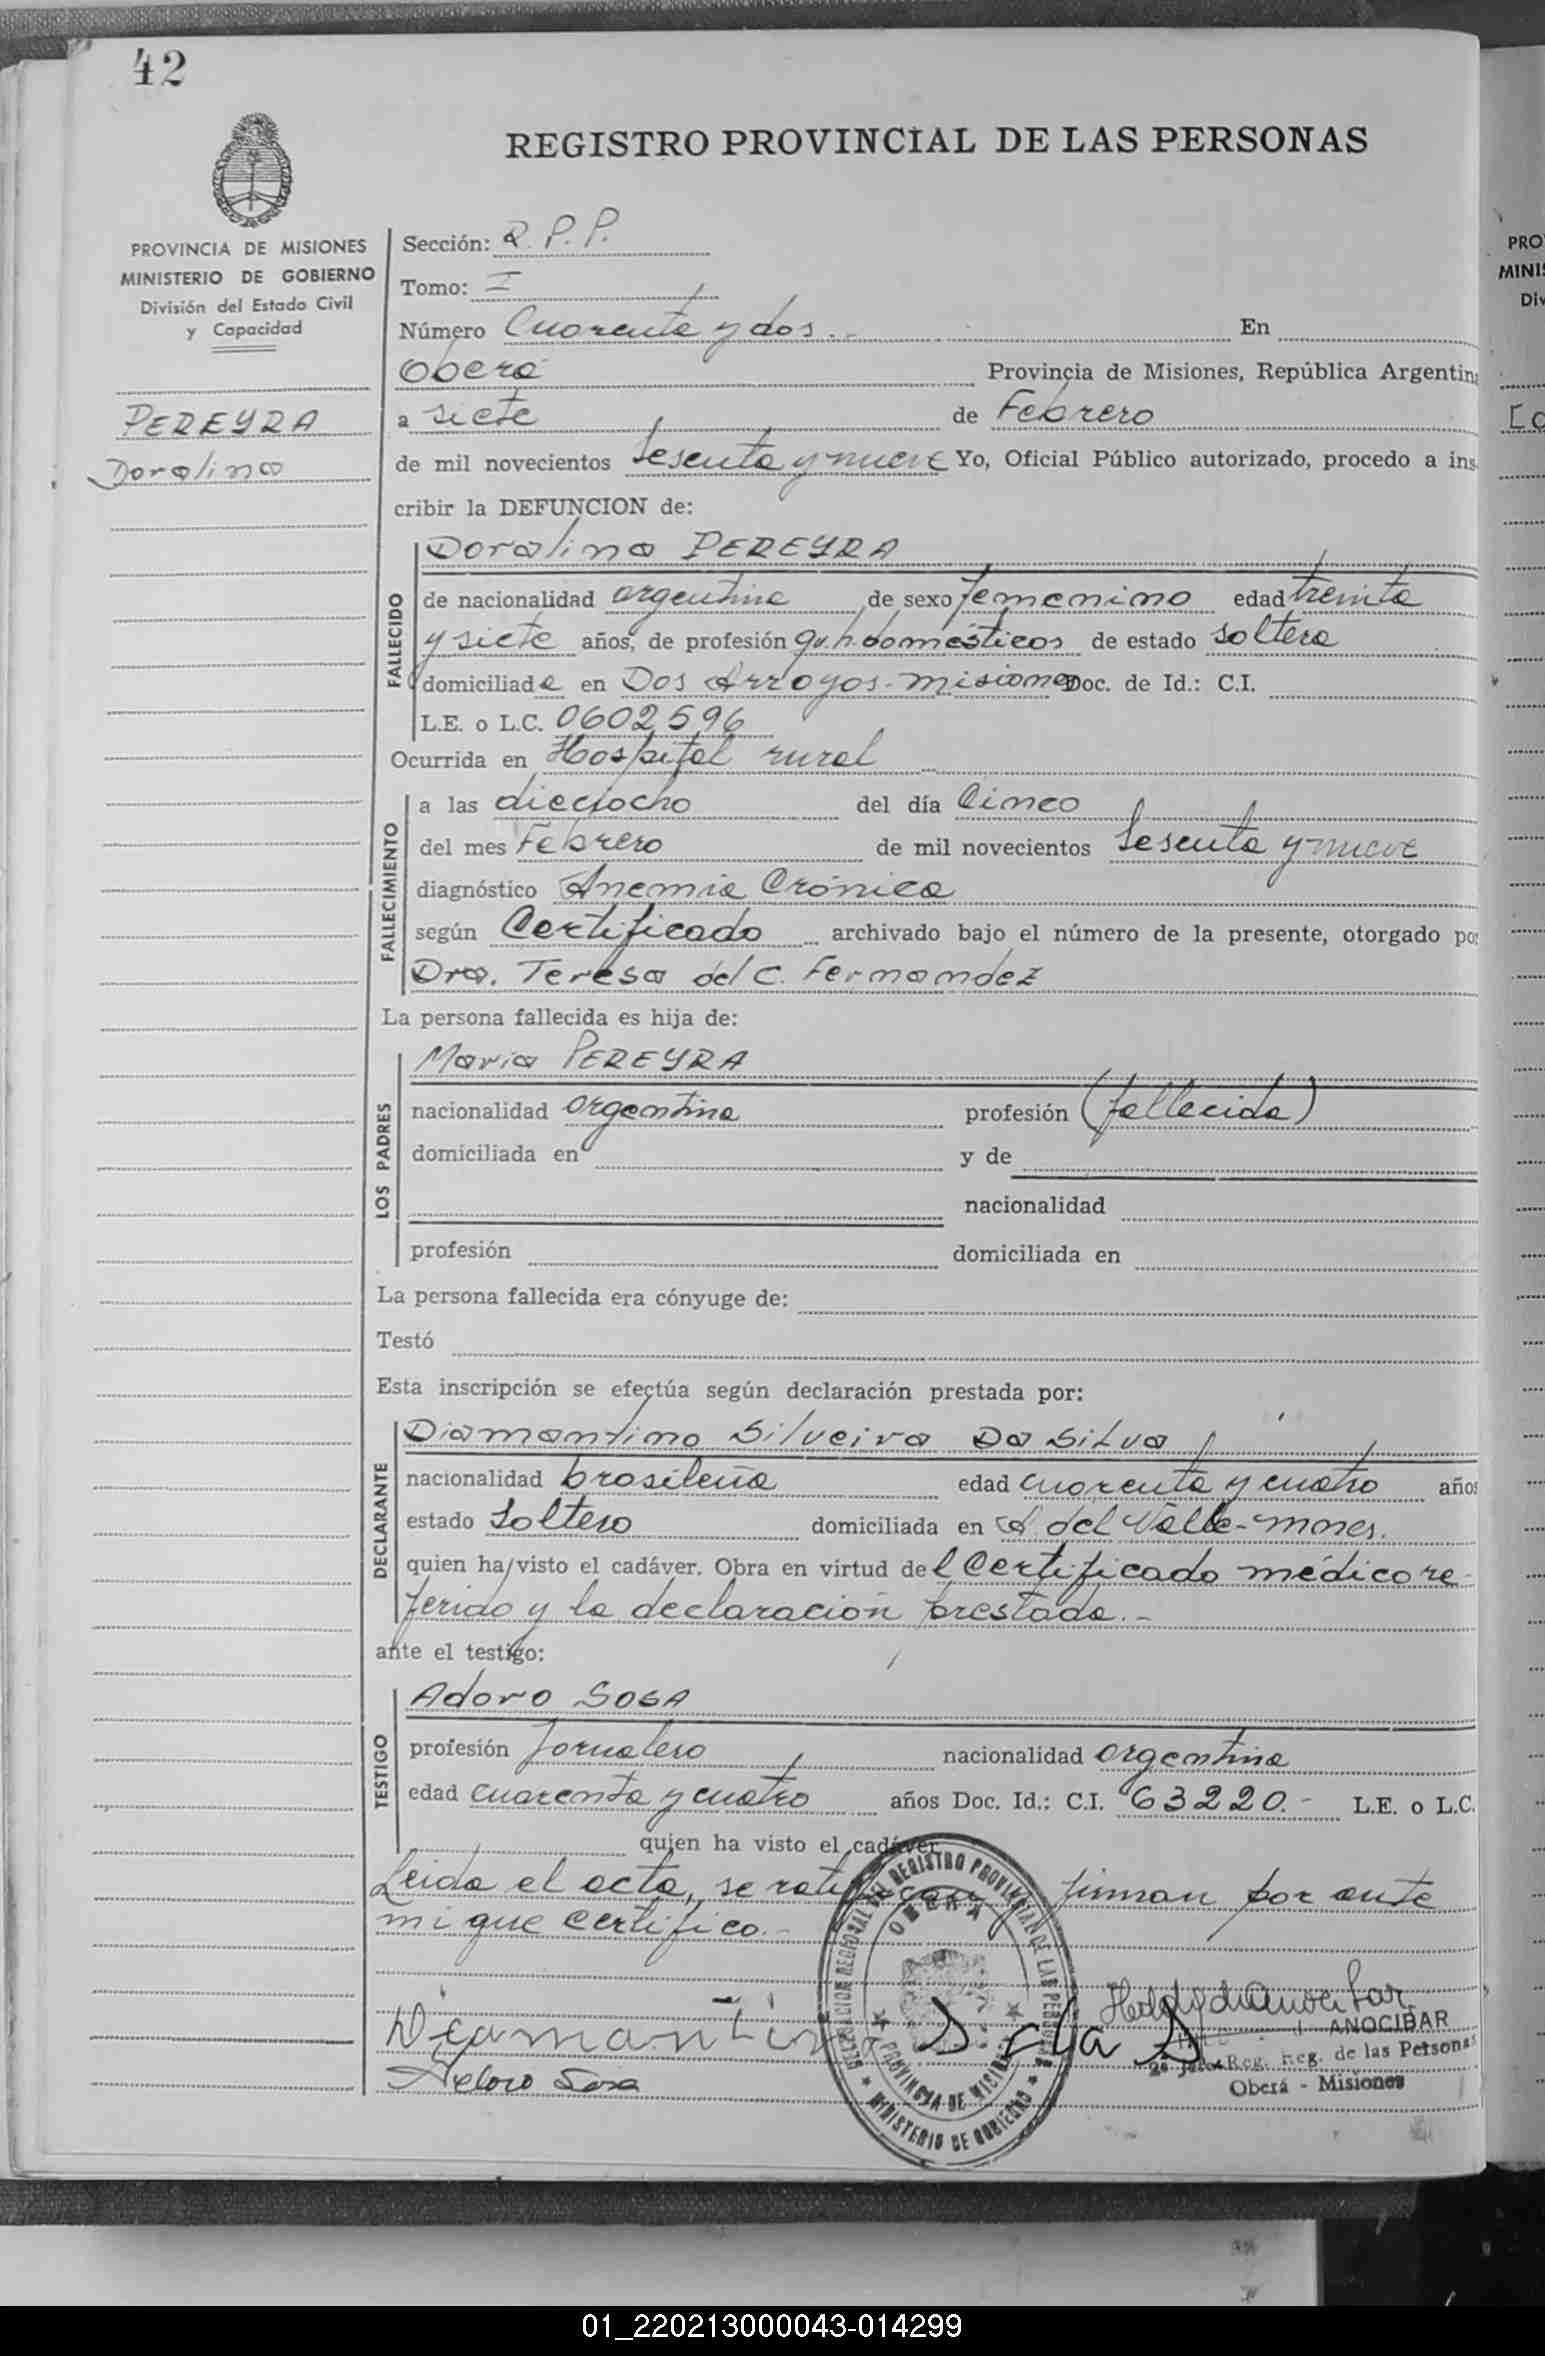 42
REGISTRO PROVINCIAL DE LAS PERSONAS
PROVINCIA DE MISIONES
MINISTERIO DE GOBIERNO
División del Estado Civil
y Capacidad
PEREYRA
Doralina
Sección: R. P. P.
Tomo: I
Número Cuarenta y dos.-- En
Oberá Provincia de Misiones, República Argentina
a siete de Febrero
de mil novecientos Sesenta y nueve Yo, Oficial Público autorizado, procedo a ins-
cribir la DEFUNCION de:
FALLECIDO
Doralina PEREYRA
de nacionalidad argentina de sexo femenino edad treinta
y siete años, de profesión qu.h.domésticos de estado soltera
domiciliada en Dos Arroyos-Misiones Doc. de Id.: C.I.
L.E. o L.C. 0602596
Ocurrida en Hospital rural
FALLECIMIENTO
a las dieciocho del día Cinco
del mes Febrero de mil novecientos Sesenta y nueve
diagnóstico Anemia Crónica
según Certificado archivado bajo el número de la presente, otorgado por
Dra. Teresa del C. Fernandez
La persona fallecida es hija de:
LOS PADRES
Maria PEREYRA
nacionalidad argentina profesión (fallecida)
domiciliada en y de
nacionalidad
profesión domiciliada en
La persona fallecida era cónyuge de:
Testó
Esta inscripción se efectúa según declaración prestada por:
DECLARANTE
Diamantino Silveira Da Silva
nacionalidad brasileña edad cuarenta y cuatro años
estado Soltero domiciliada en A. del Valle-Mnes.
quien ha visto el cadáver. Obra en virtud del Certificado médico re-
ferido y la declaración prestada.-
ante el testigo:
TESTIGO
Adoro SOSA
profesión Jornalero nacionalidad argentina
edad cuarenta y cuatro años Doc. Id.: C.I. 63220.- L.E. o L.C.
quien ha visto el cadáver
Leida el acta, se ratifican y firman por ante
mi que certifico.-
DELEGACION REGIONAL DEL REGISTRO PROVINCIAL DE LAS PERSONAS
OBERA
PROVINCIA DE MISIONES
MINISTERIO DE GOBIERNO
Diamantino S da S
ANOCIBAR
Reg. de las Personas
Oberá - Misiones
Adoro Sosa
PRO
MINIS
Div
01_220213000043-014299